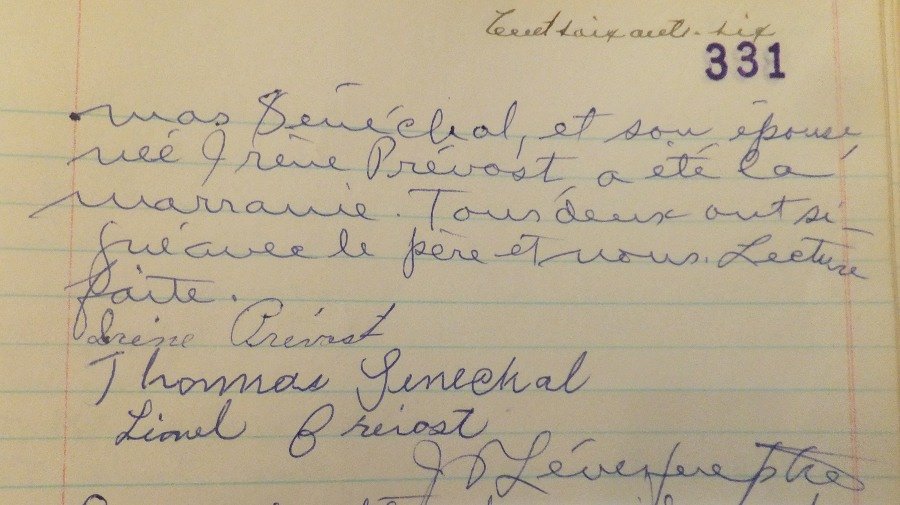 Cent soixante-six
331
mas Sénéchal, et son épouse,
née Irène Prévost a été la
marraine. Tous deux ont si
gné avec le père et nous. Lecture
faite.
Irène Prévost
Thomas Senechal
Lionel Prévost
Ptre